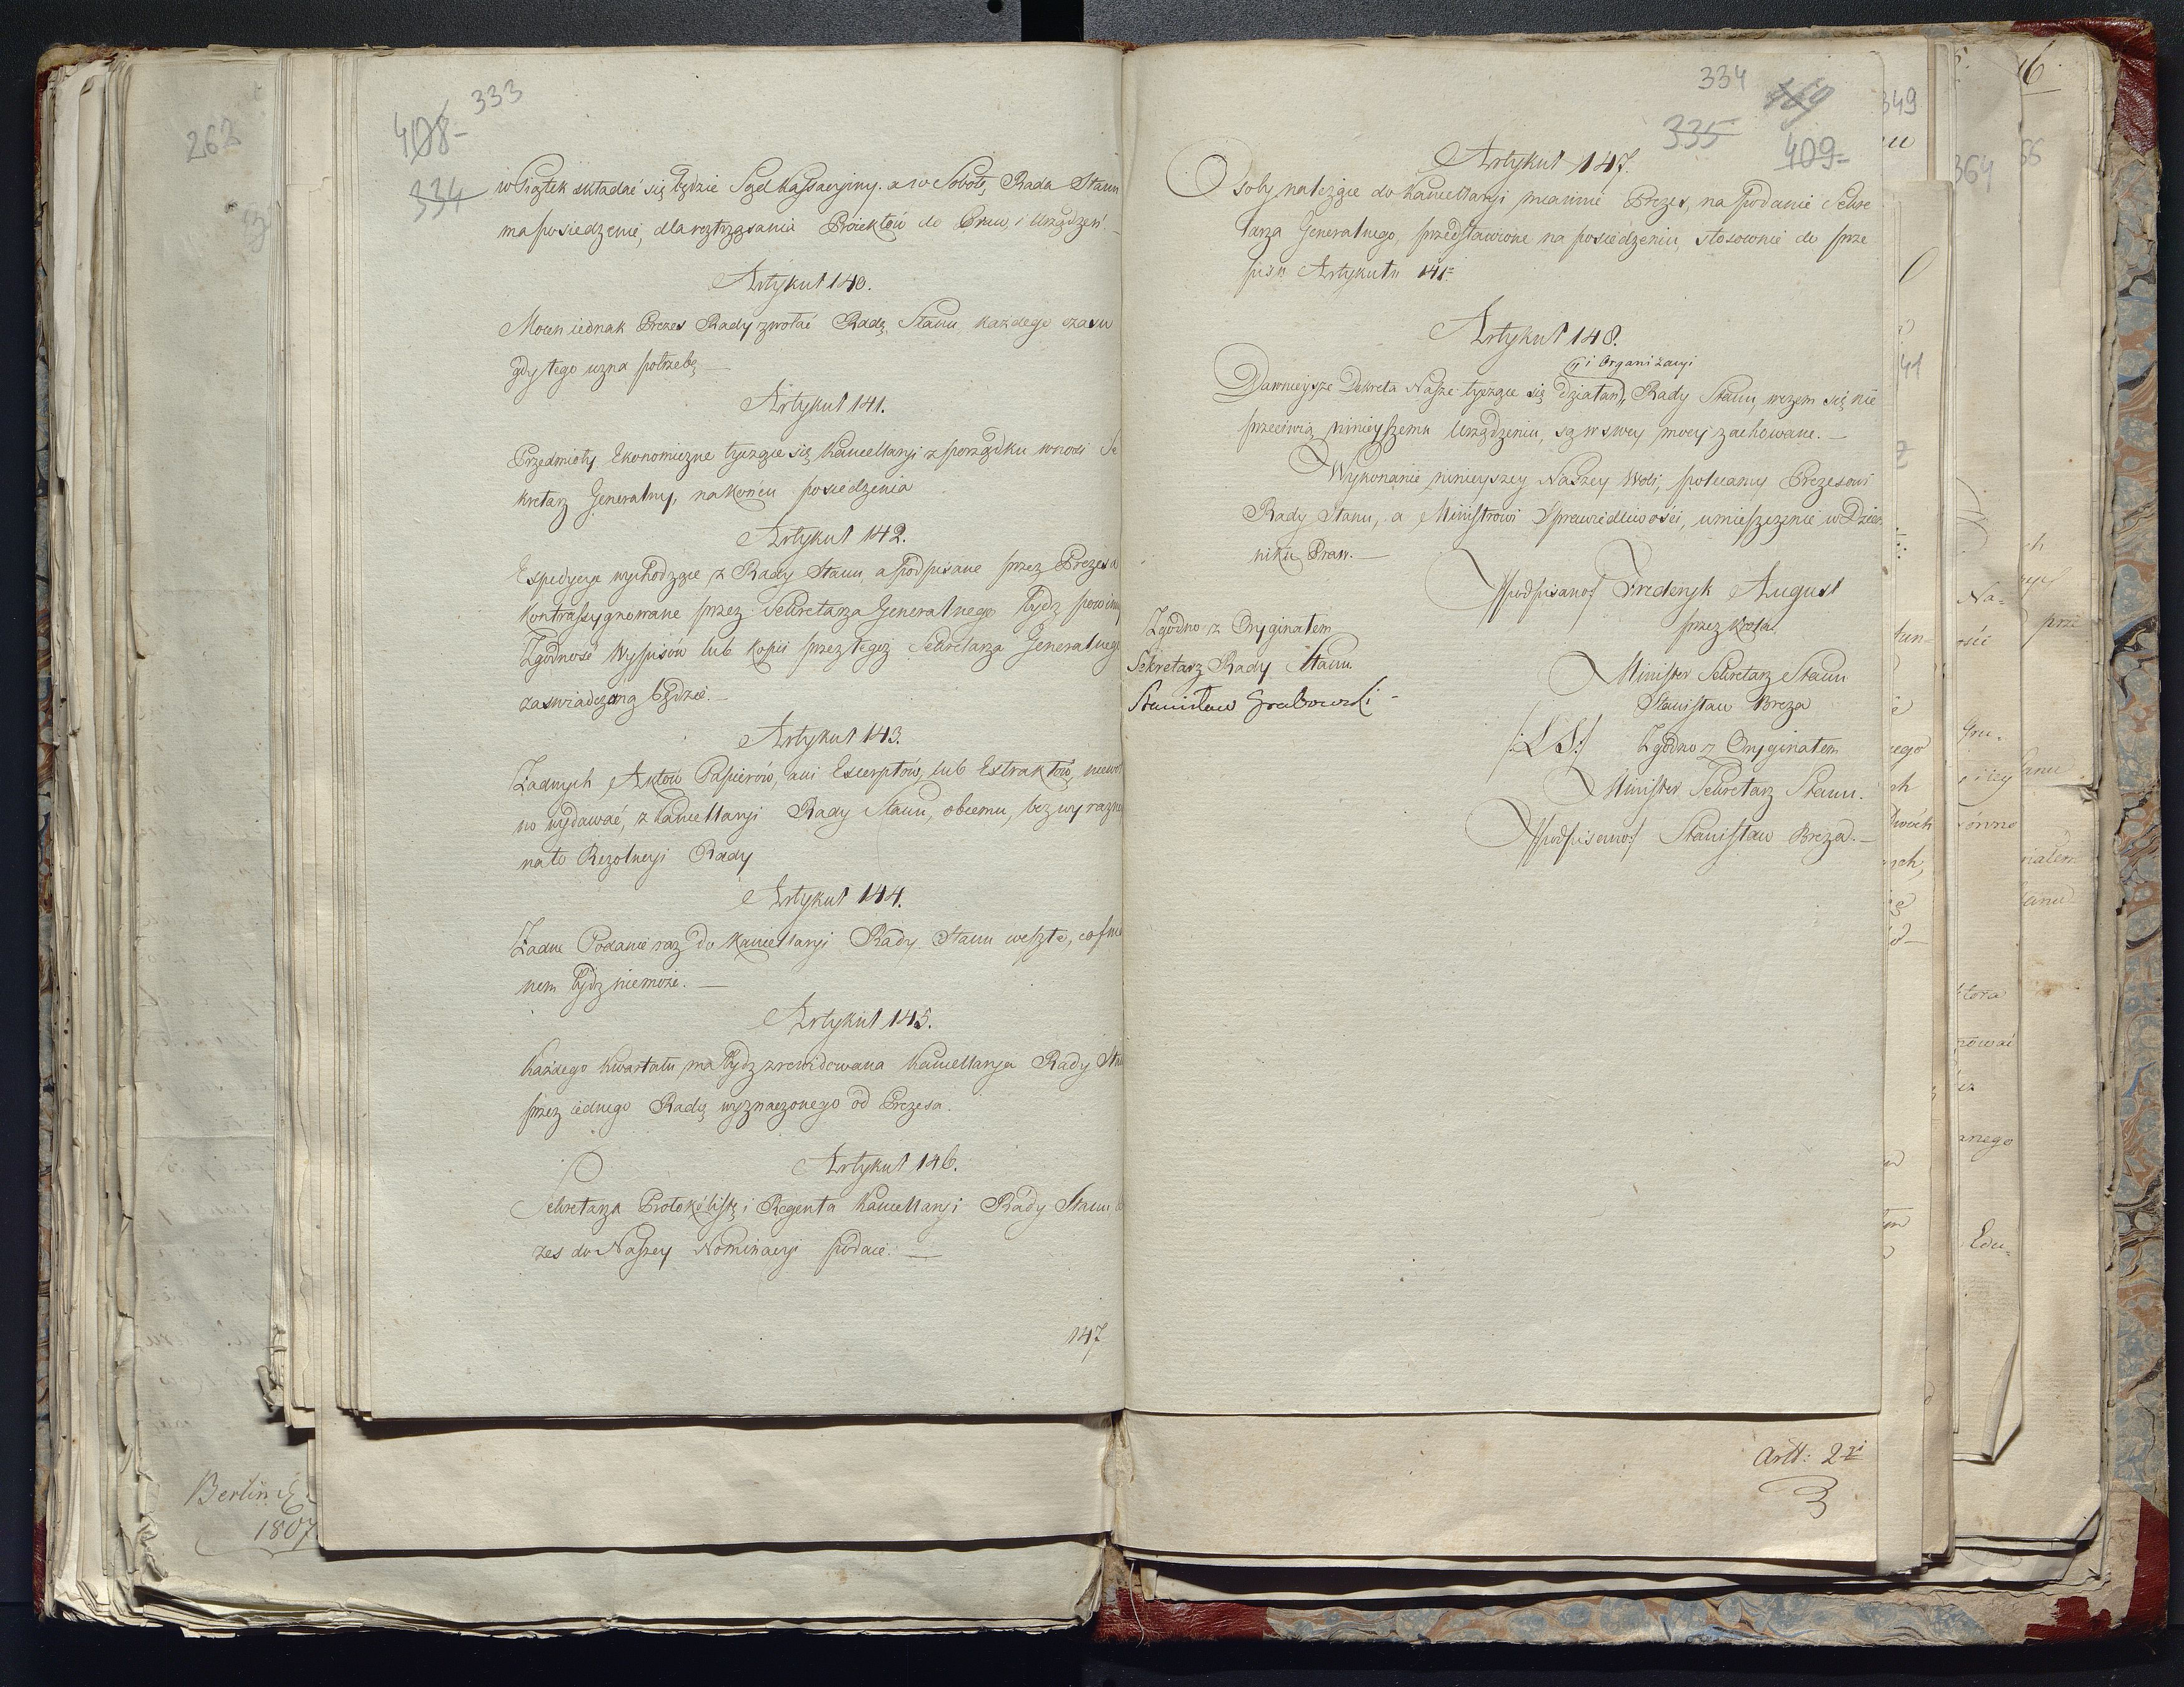 408-
333
334
w Piątek składać się będzie Sąd Kassacyiny. a w Sobotę Rada Stanu
ma posiedzenie, dla roztrząsania Proiektów do Praw, i Urządzeń
Artykuł 140.
Mocen iednak Prezes Rady zwołać Radę Stanu każdego czasu
gdy tego uzna potrzebę —
Artykuł 141.
Przedmioty Ekonomiczne tyczące się Kancellaryi z porządku wnosi Se
kretarz Generalny, na końcu posiedzenia
Artykuł 142.
Expedycye wychodzące z Rady Stanu, a podpisane przez Prezesa
kontrassygnowane przez Sekretarza Generalnego bydz powinny
Zgodność Wypisów lub Kopii przez tegoż Sekretarza Generalnego
zaswiadczoną będzie. —
Artykuł 143.
Żadnych Aktów Papierów, ani Excerptów, lub Extraktów, niewol
no wydawać, z Kancellaryi Rady Stanu, obcemu, bez wyrazney
na to Rezolucyi Rady
Artykuł 144.
Żadne Podanie raz do Kancellaryi Rady Stanu weszłe, cofnio
nem bydz niemoże. —
Artykuł 145.
Każdego Kwartału, ma bydz zrewidowana Kancellarya Rady Stanu
przez iednego Radcę wyznaczonego od Prezesa.
Artykuł 146.
Sekretarza Protokolistę i Regenta Kancellaryi Rady Stanu
zes do Naszey Nominacyi podaie. —
147
334
335
409-
Artykuł 147.
Osoby należące do Kancellaryi mianuie Prezes, na podanie Sekre
tarza Generalnego, przedstawione na posiedzeniu, stosownie do prze
pisu Artykułu 141=
Artykuł 148.
i Organizacyi
Dawnieysze Dekreta Nasze tyczące się działań Rady Stanu, wczem się nie
przeciwią ninieyszemu Urządzeniu, są w swey mocy zachowane. —
Wykonanie ninieyszey Naszey Woli, polecamy Prezesowi
Rady Stanu, a Ministrowi Sprawiedliwości, umieszczenie w Dzien
niku Praw. —
/podpisano/ Frederyk August
przez Króla
Minister Sekretarz Stanu
Stanisław Breza
/:L S:/ Zgodno z Oryginałem
Minister Sekretarz Stanu.
/podpisano/ Stanisław Breza. —
Zgodno z Oryginałem
Sekretarz Rady Stanu
Stanisław Grabowski -
Artt: 2
262
Berlin
1807
349
364